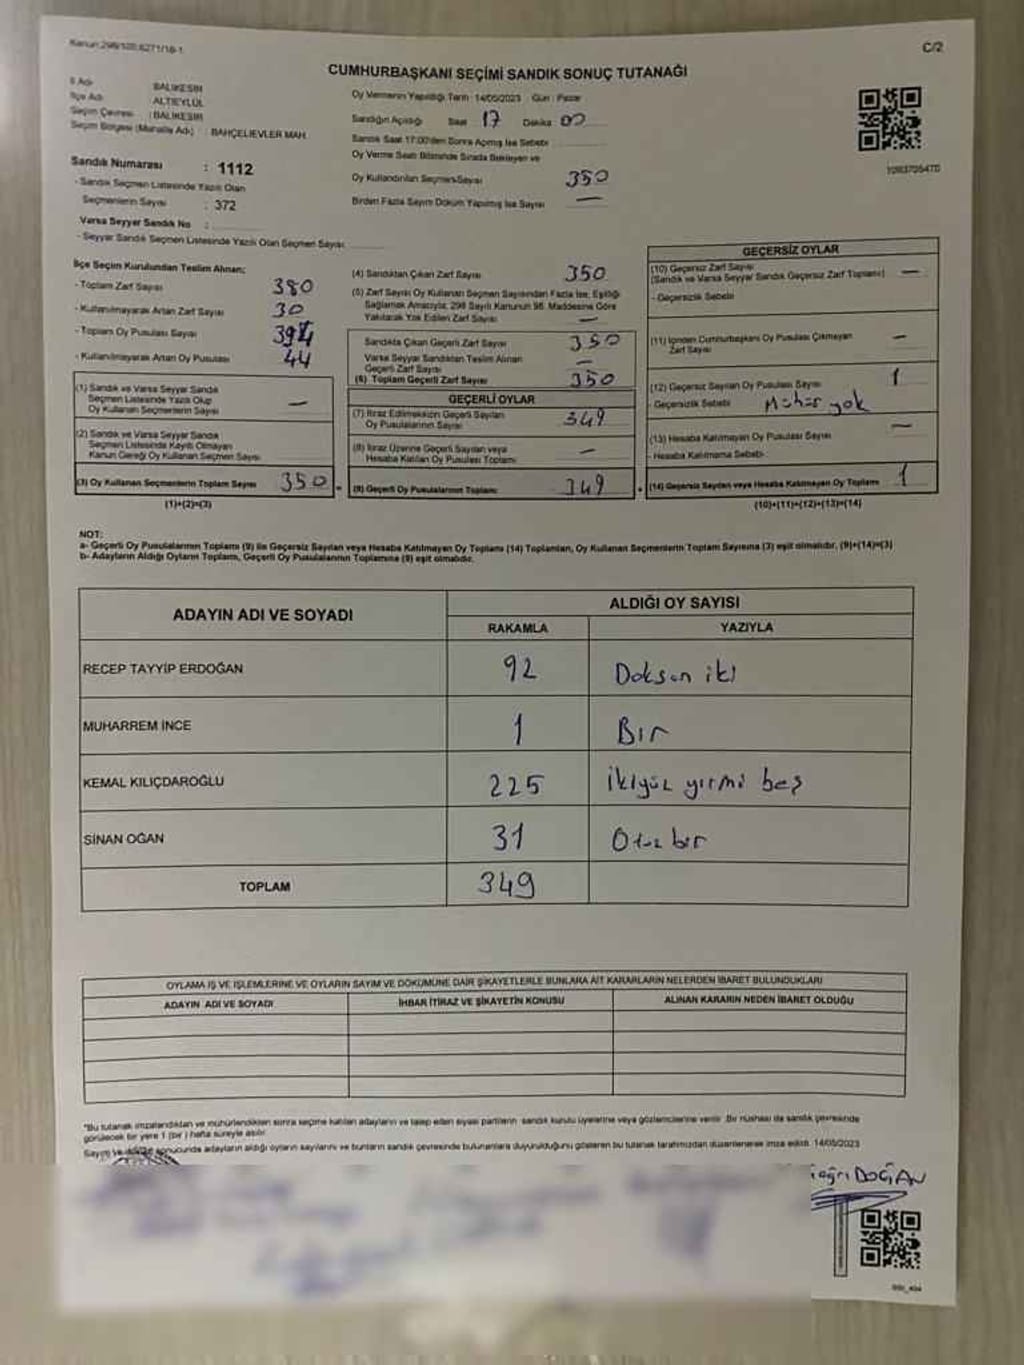 Kanun:298/105,6271/18-1
C/2
CUMHURBAŞKANI SEÇİMİ SANDIK SONUÇ TUTANAĞI
İl Adı BALIKESİR
İlçe Adı ALTIEYLÜL
Seçim Çevresi : BALIKESİR
Seçim Bölgesi (Mahalle Adı) : BAHÇELİEVLER MAH.
Sandık Numarası : 1112
- Sandık Seçmen Listesinde Yazılı Olan
Seçmenlerin Sayısı : 372
Varsa Seyyar Sandık No :
- Seyyar Sandık Seçmen Listesinde Yazılı Olan Seçmen Sayısı
Oy Vermenin Yapıldığı Tarih : 14/05/2023 Gün : Pazar
Sandığın Açıldığı Saat 17 Dakika 00
Sandık Saat 17:00'den Sonra Açmış İse Sebebi
Oy Verme Saati Bitiminde Sırada Bekleyen ve
Oy Kullandırılan Seçmen Sayısı 350
Birden Fazla Sayım Döküm Yapılmış İse Sayısı —
İlçe Seçim Kurulundan Teslim Alınan;
- Toplam Zarf Sayısı 380
- Kullanılmayarak Artan Zarf Sayısı 30
- Toplam Oy Pusulası Sayısı 394
- Kullanılmayarak Artan Oy Pusulası 44
(1) Sandık ve Varsa Seyyar Sandık
Seçmen Listesinde Yazılı Olup
Oy Kullanan Seçmenlerin Sayısı —
(2) Sandık ve Varsa Seyyar Sandık
Seçmen Listesinde Kayıtlı Olmayan
Kanun Gereği Oy Kullanan Seçmen Sayısı
(3) Oy Kullanan Seçmenlerin Toplam Sayısı 350
(1)+(2)=(3)
(4) Sandıktan Çıkan Zarf Sayısı 350
(5) Zarf Sayısı Oy Kullanan Seçmen Sayısından Fazla İse, Eşitliği
Sağlamak Amacıyla; 298 Sayılı Kanunun 98. Maddesine Göre
Yakılarak Yok Edilen Zarf Sayısı —
Sandıkta Çıkan Geçerli Zarf Sayısı 350
Varsa Seyyar Sandıktan Teslim Alınan
Geçerli Zarf Sayısı —
(6) Toplam Geçerli Zarf Sayısı 350
GEÇERLİ OYLAR
(7) İtiraz Edilmeksizin Geçerli Sayılan
Oy Pusulalarının Sayısı 349
(8) İtiraz Üzerine Geçerli Sayılan veya
Hesaba Katılan Oy Pusulası Toplamı —
(9) Geçerli Oy Pusulalarının Toplamı 349
GEÇERSİZ OYLAR
(10) Geçersiz Zarf Sayısı
(Sandık ve Varsa Seyyar Sandık Geçersiz Zarf Toplamı) —
- Geçersizlik Sebebi
(11) İçinden Cumhurbaşkanı Oy Pusulası Çıkmayan
Zarf Sayısı —
(12) Geçersiz Sayılan Oy Pusulası Sayısı 1
- Geçersizlik Sebebi Mühür yok
(13) Hesaba Katılmayan Oy Pusulası Sayısı —
- Hesaba Katılmama Sebebi
(14) Geçersiz Sayılan veya Hesaba Katılmayan Oy Toplamı 1
(10)+(11)+(12)+(13)=(14)
NOT:
a- Geçerli Oy Pusulalarının Toplamı (9) ile Geçersiz Sayılan veya Hesaba Katılmayan Oy Toplamı (14) Toplamları, Oy Kullanan Seçmenlerin Toplam Sayısına (3) eşit olmalıdır. (9)+(14)=(3)
b- Adayların Aldığı Oyların Toplamı, Geçerli Oy Pusulalarının Toplamına (9) eşit olmalıdır.
ADAYIN ADI VE SOYADI ALDIĞI OY SAYISI
RAKAMLA YAZIYLA
RECEP TAYYİP ERDOĞAN 92 Doksan iki
MUHARREM İNCE 1 Bir
KEMAL KILIÇDAROĞLU 225 İkiyüz yirmi beş
SİNAN OĞAN 31 Otuz bir
TOPLAM 349
OYLAMA İŞ VE İŞLEMLERİNE VE OYLARIN SAYIM VE DÖKÜMÜNE DAİR ŞİKAYETLERLE BUNLARA AİT KARARLARIN NELERDEN İBARET BULUNDUKLARI
ADAYIN ADI VE SOYADI İHBAR İTİRAZ VE ŞİKAYETİN KONUSU ALINAN KARARIN NEDEN İBARET OLDUĞU
*Bu tutanak imzalandıktan ve mühürlendikten sonra seçime katılan adayların ve talep eden siyasi partilerin sandık kurulu üyelerine veya gözlemcilerine verilir. Bir nüshası da sandık çevresinde
görülecek bir yere 1 (bir) hafta süreyle asılır.
Sayım ve döküm sonucunda adayların aldığı oyların sayılarını ve bunların sandık çevresinde bulunanlara duyurulduğunu gösteren bu tutanak tarafımızdan düzenlenerek imza edildi. 14/05/2023
DOĞAN